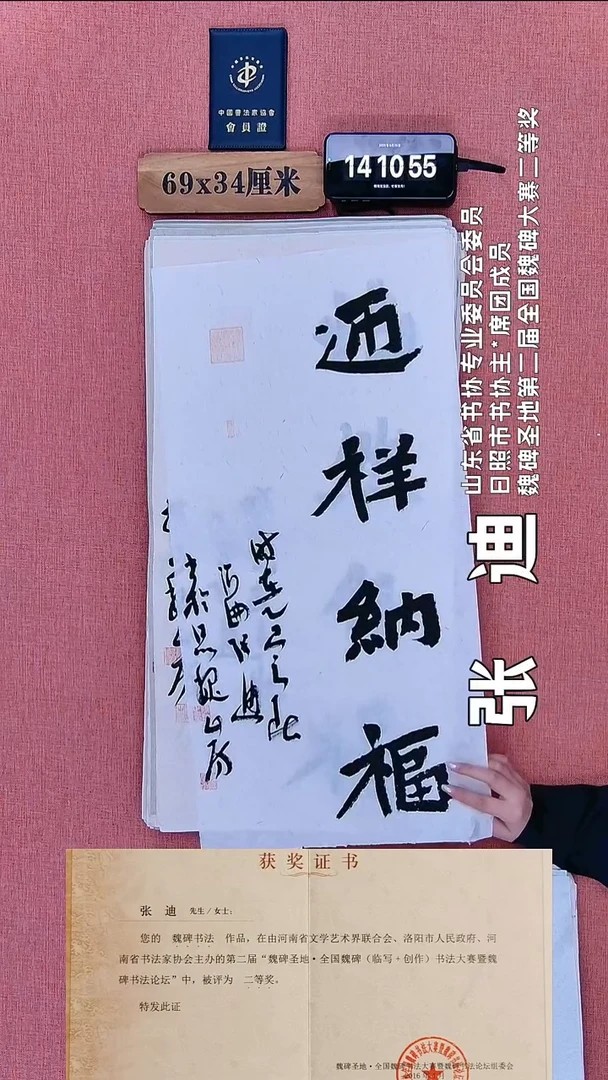 中國書法家協會
會員證
69x34厘米
14 10 55
迺祥納福
山东省书协专业委员会委员
日照市书协主*席团成员
魏碑圣地第二届全国魏碑大赛二等奖
张 迪
获奖证书
张 迪 先生／女士：
您的 魏碑书法 作品，在由河南省文学艺术界联合会、洛阳市人民政府、河
南省书法家协会主办的第二届“魏碑圣地·全国魏碑（临写+创作）书法大赛暨魏
碑书法论坛”中，被评为 二等奖。
特发此证
魏碑圣地·全国魏碑书法大赛暨魏碑书法论坛组委会